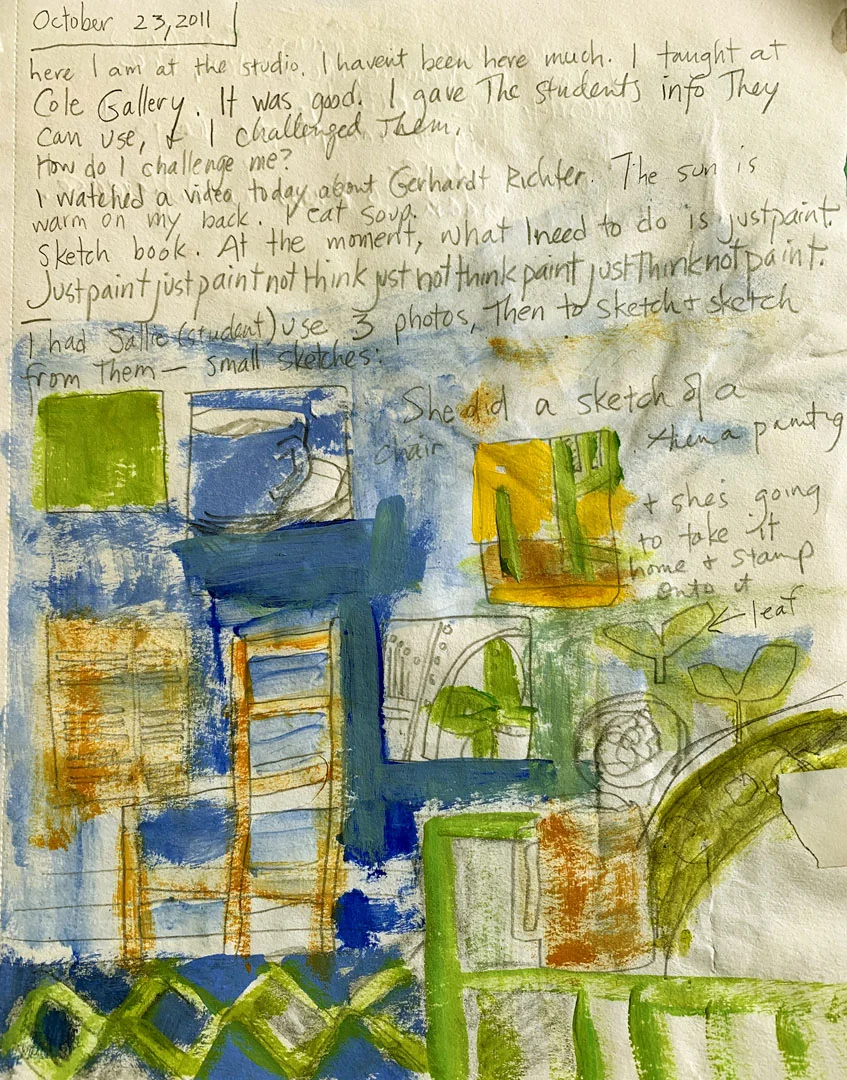 October 23, 2011
here I am at the studio. I havent been here much. I taught at
Cole Gallery. It was good. I gave The students info They
can use, + I challenged Them.
How do I challenge me?
I watched a video today about Gerhardt Richter. The sun is
warm on my back. I eat soup.
Sketch book. At the moment, what I need to do is just paint.
Just paint just paint not think just not think paint just Think not paint.
I had Sallie (student) use 3 photos, Then to sketch + sketch
from Them — small sketches:
She did a sketch of a
chair . then a painting
+ she's going
to take it
home + stamp
onto it
← leaf